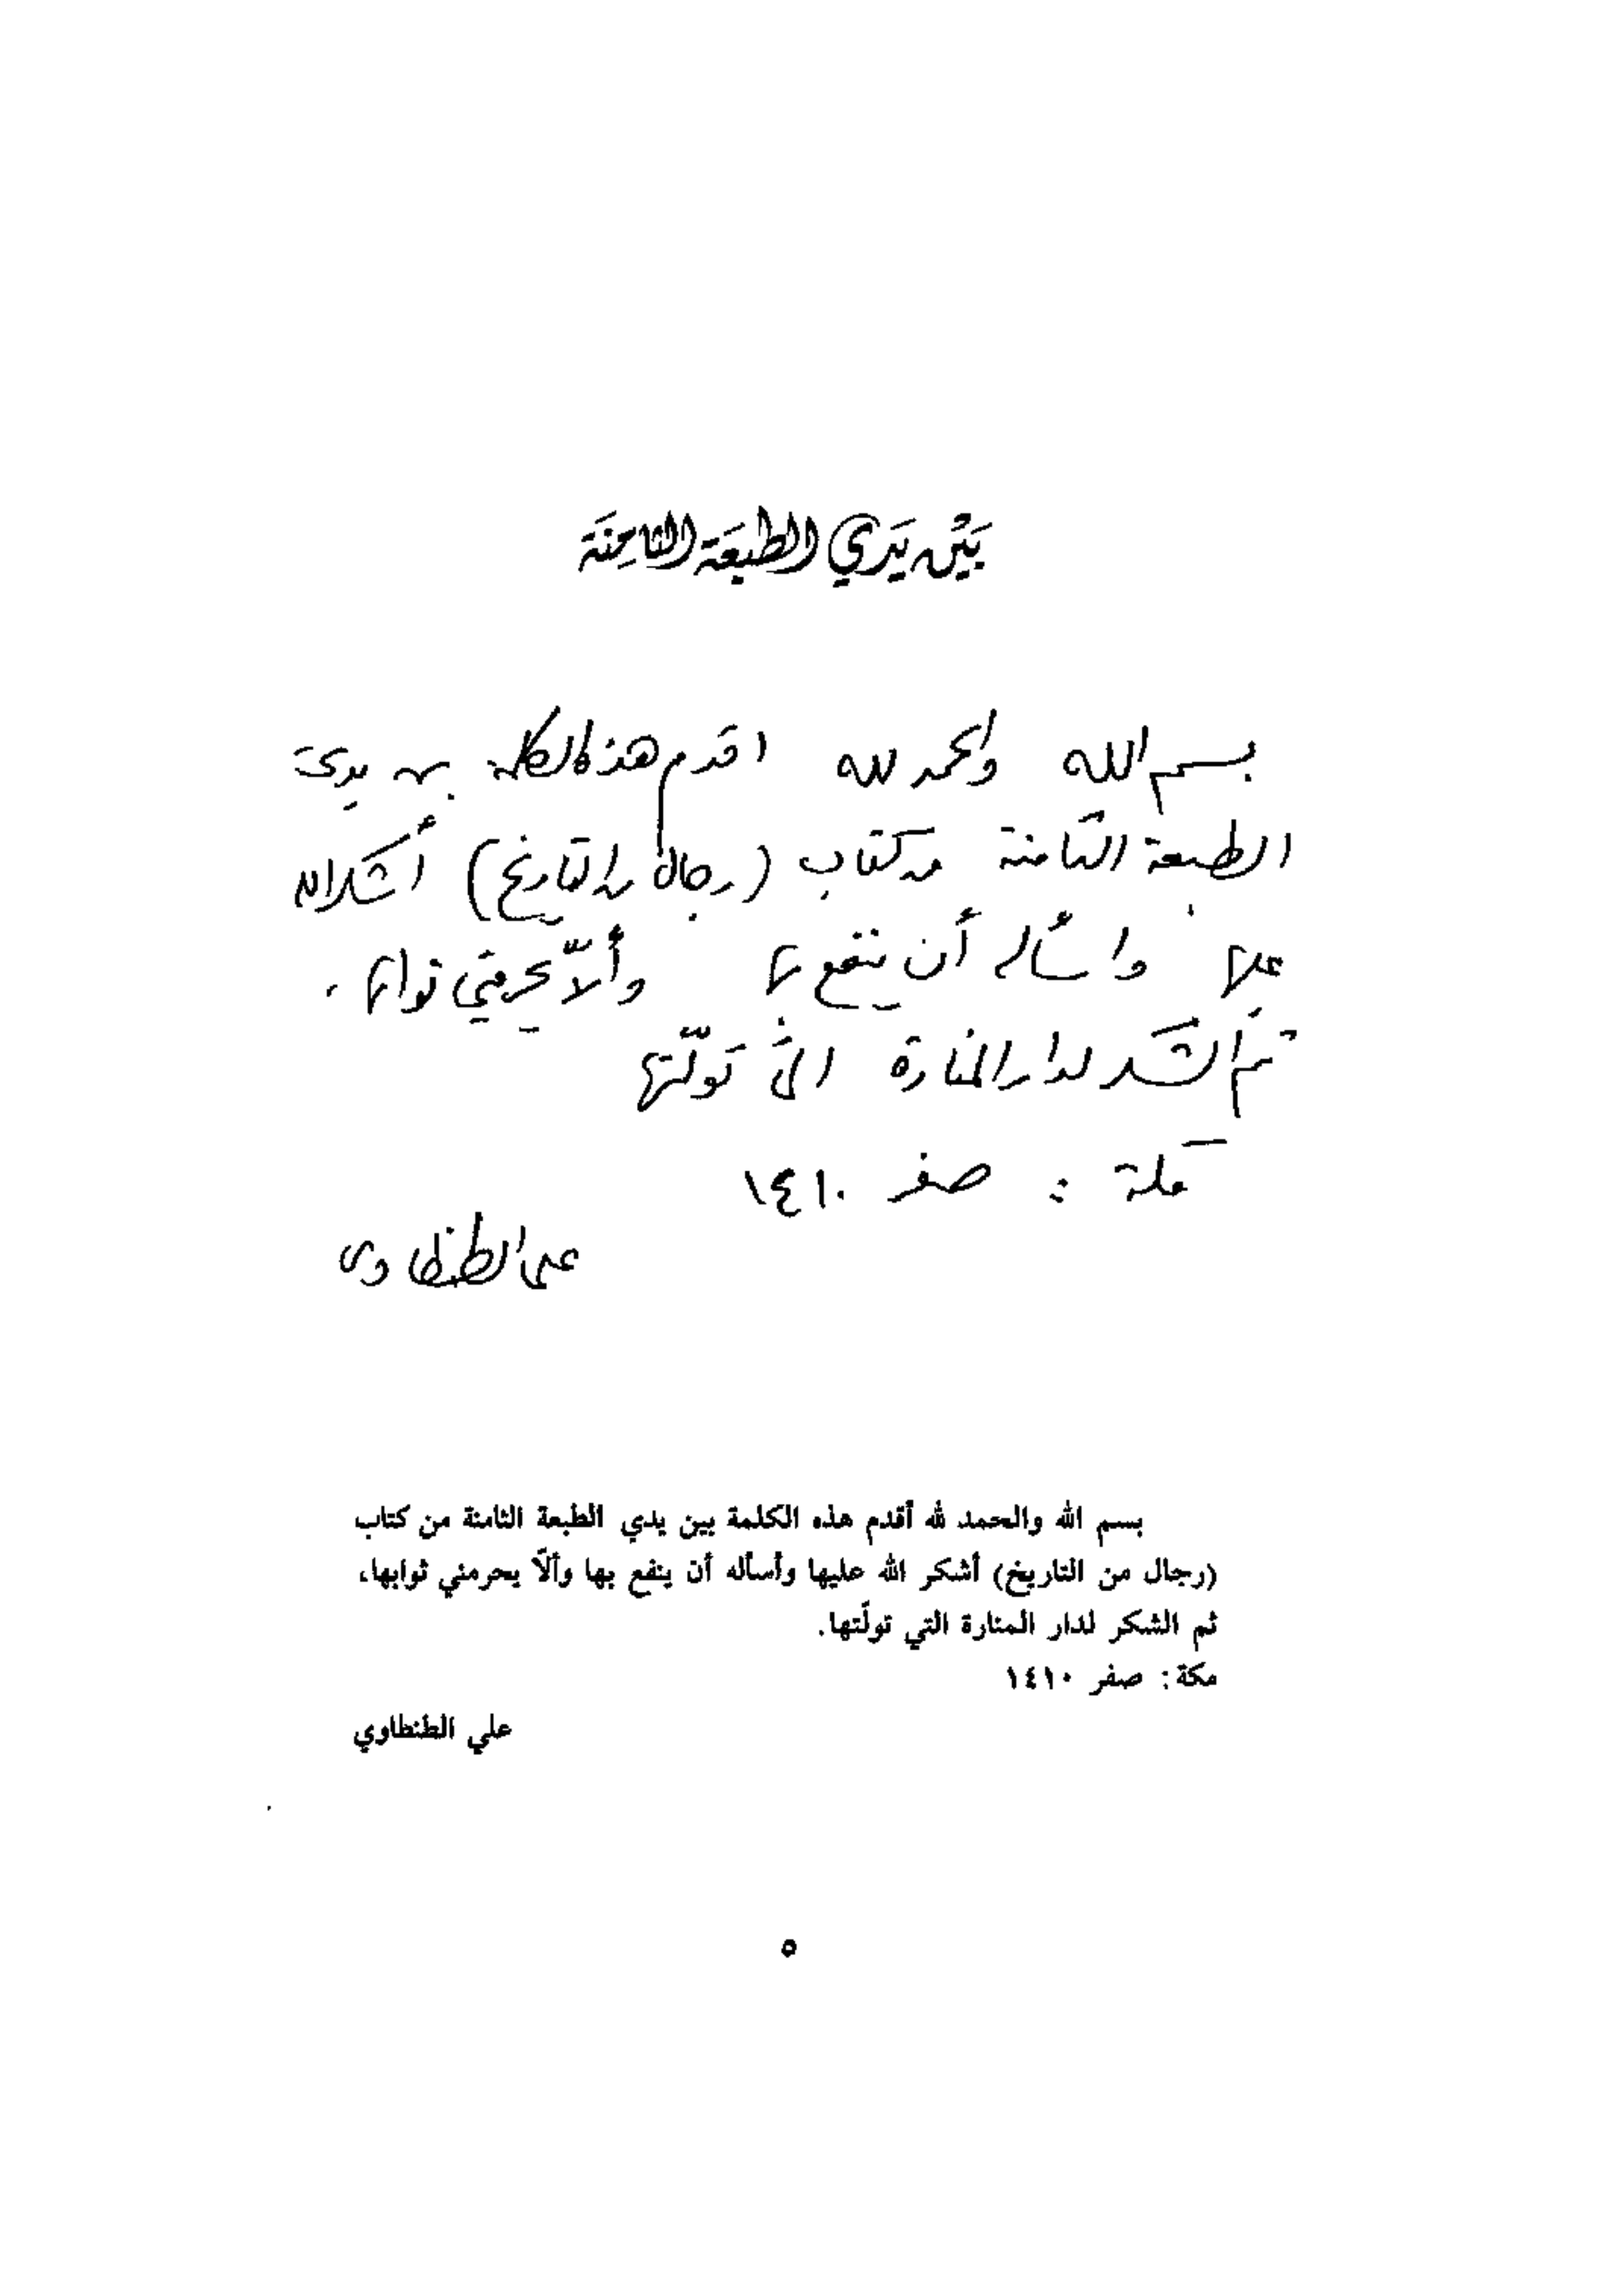 بَيْن يَدَي الطبعَة الثامِنَة
بسم الله والحمد لله اقدم هذه الكلمة بين يدي
الطبعة الثامنة من كتاب (رجال من التاريخ) أشكر الله
عليها وأسأله أن ينفع بها وألاّ يحرمني ثوابها،
ثم الشكر لدار المنارة التي تولّتها
مكة : صفر ١٤١٠
علي الطنطاوي
بسم الله والحمد لله أقدم هذه الكلمة بين يدي الطبعة الثامنة من كتاب
(رجال من التاريخ) أشكر الله عليها وأسأله أن ينفع بها وألاّ يحرمني ثوابها،
ثم الشكر لدار المنارة التي تولّتها.
مكة: صفر ١٤١٠
علي الطنطاوي
٥